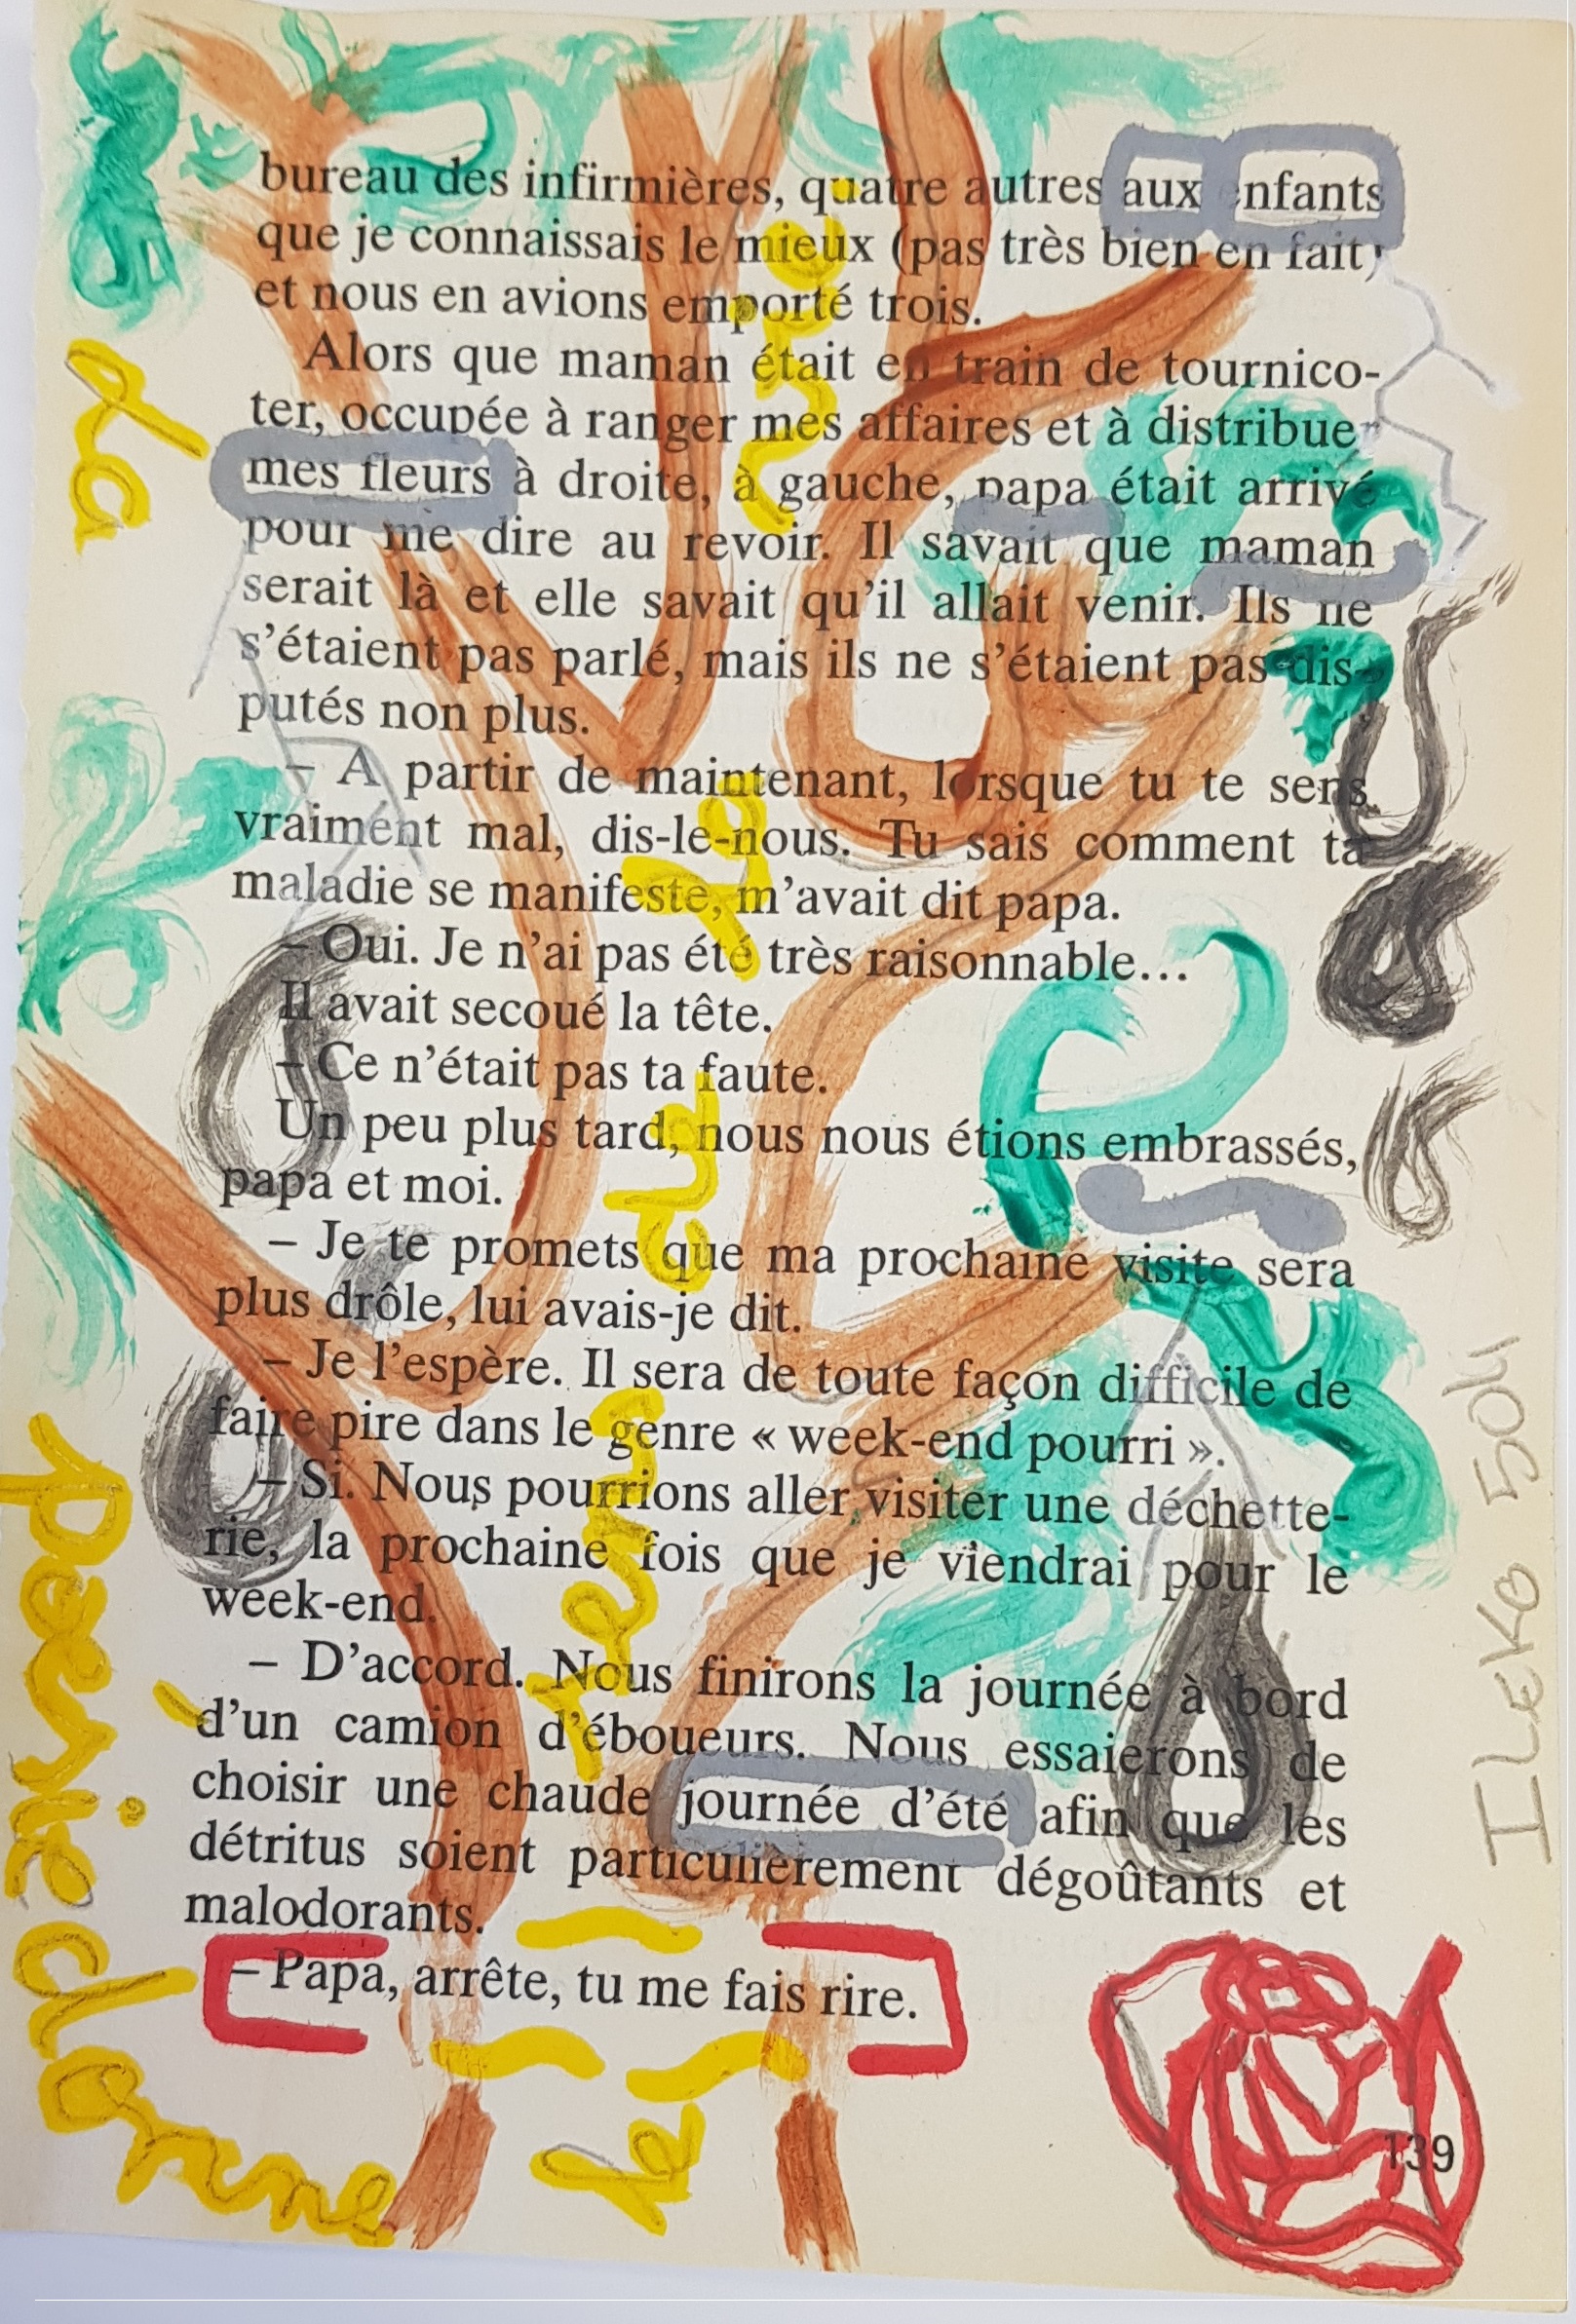 bureau des infirmières, quatre autres aux enfants
que je connaissais le mieux (pas très bien en fait)
et nous en avions emporté trois.
Alors que maman était en train de tournico-
ter, occupée à ranger mes affaires et à distribuer
mes fleurs à droite, à gauche, papa était arrivé
pour me dire au revoir. Il savait que maman
serait là et elle savait qu'il allait venir. Ils ne
s'étaient pas parlé, mais ils ne s'étaient pas dis-
putés non plus.
– A partir de maintenant, lorsque tu te sens
vraiment mal, dis-le-nous. Tu sais comment ta
maladie se manifeste, m'avait dit papa.
– Oui. Je n'ai pas été très raisonnable...
Il avait secoué la tête.
– Ce n'était pas ta faute.
Un peu plus tard, nous nous étions embrassés,
papa et moi.
– Je te promets que ma prochaine visite sera
plus drôle, lui avais-je dit.
– Je l'espère. Il sera de toute façon difficile de
faire pire dans le genre « week-end pourri ».
– Si. Nous pourrions aller visiter une déchette-
rie, la prochaine fois que je viendrai pour le
week-end.
– D'accord. Nous finirons la journée à bord
d'un camion d'éboueurs. Nous essaierons de
choisir une chaude journée d'été afin que les
détritus soient particulièrement dégoûtants et
malodorants.
– Papa, arrête, tu me fais rire.
139
La
poésie donne
de
la